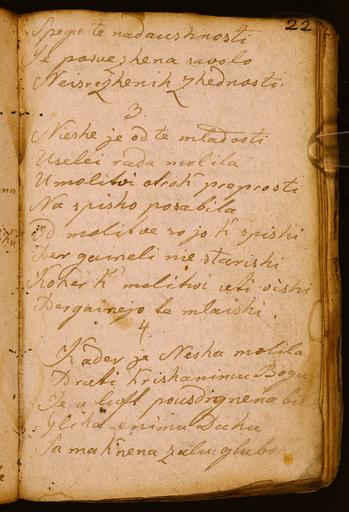 22
Spegio te nadaushnosti
Je posvezhena savolo
Neisrezhenih zhednosti.
3.
Nieshe je od te mladosti
Uselei rada molila
U molitvi otrok preprosti
Na spisho posabila
Od molitve sojo k' spishi
Der gaineli me starishi
Koker k' molitvi ieti vishi
Dergainejo te mlaishi.
4.
Kader je Nesha molila
Druti krishanimu Bogu
Je u luft pousdrgnena bila
Glika enimu Duhu
Samaknena zalu glubo